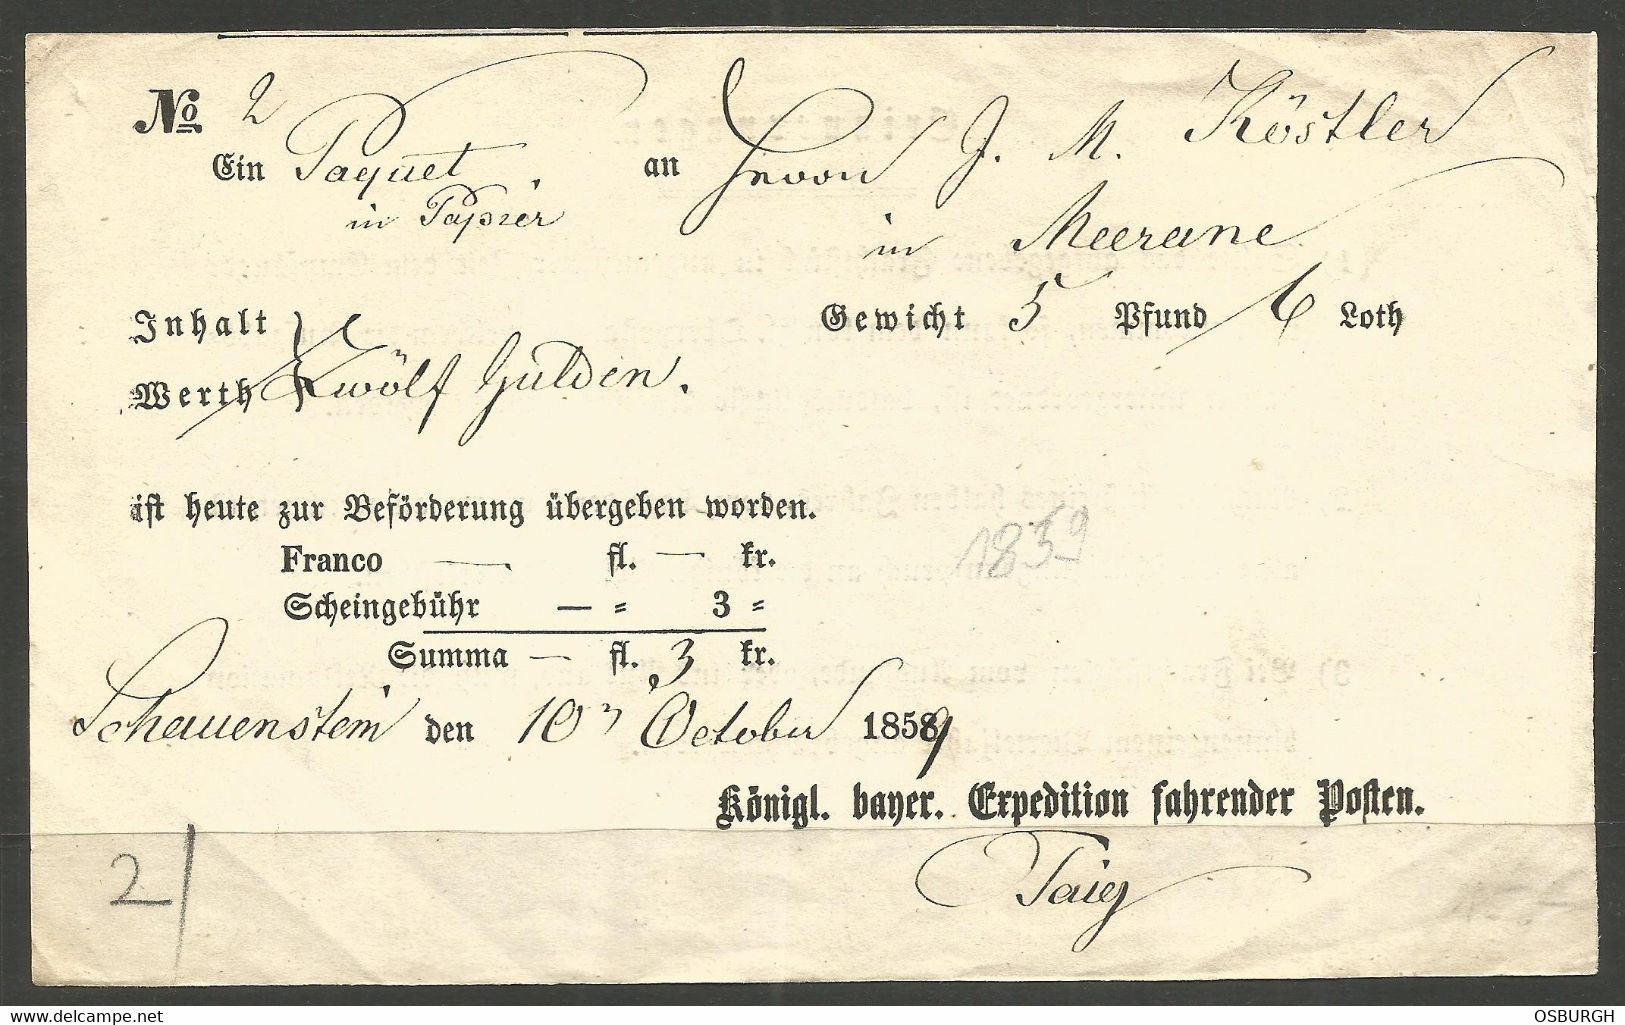 No 2
Ein Paquet an Herrn J. M. Köstler
in Papier
in Meerane
Inhalt } Gewicht 5 Pfund 6 Loth
Werth } Zwölf Gulden.
ist heute zur Beförderung übergeben worden.
Franco — fl. — kr.
Scheingebühr — " 3 "
Summa — fl. 3 kr.
1859
Schauenstein den 10n October 1859
Königl. bayer. Expedition fahrender Posten.
2/
www.delcampe.net OSBURGH